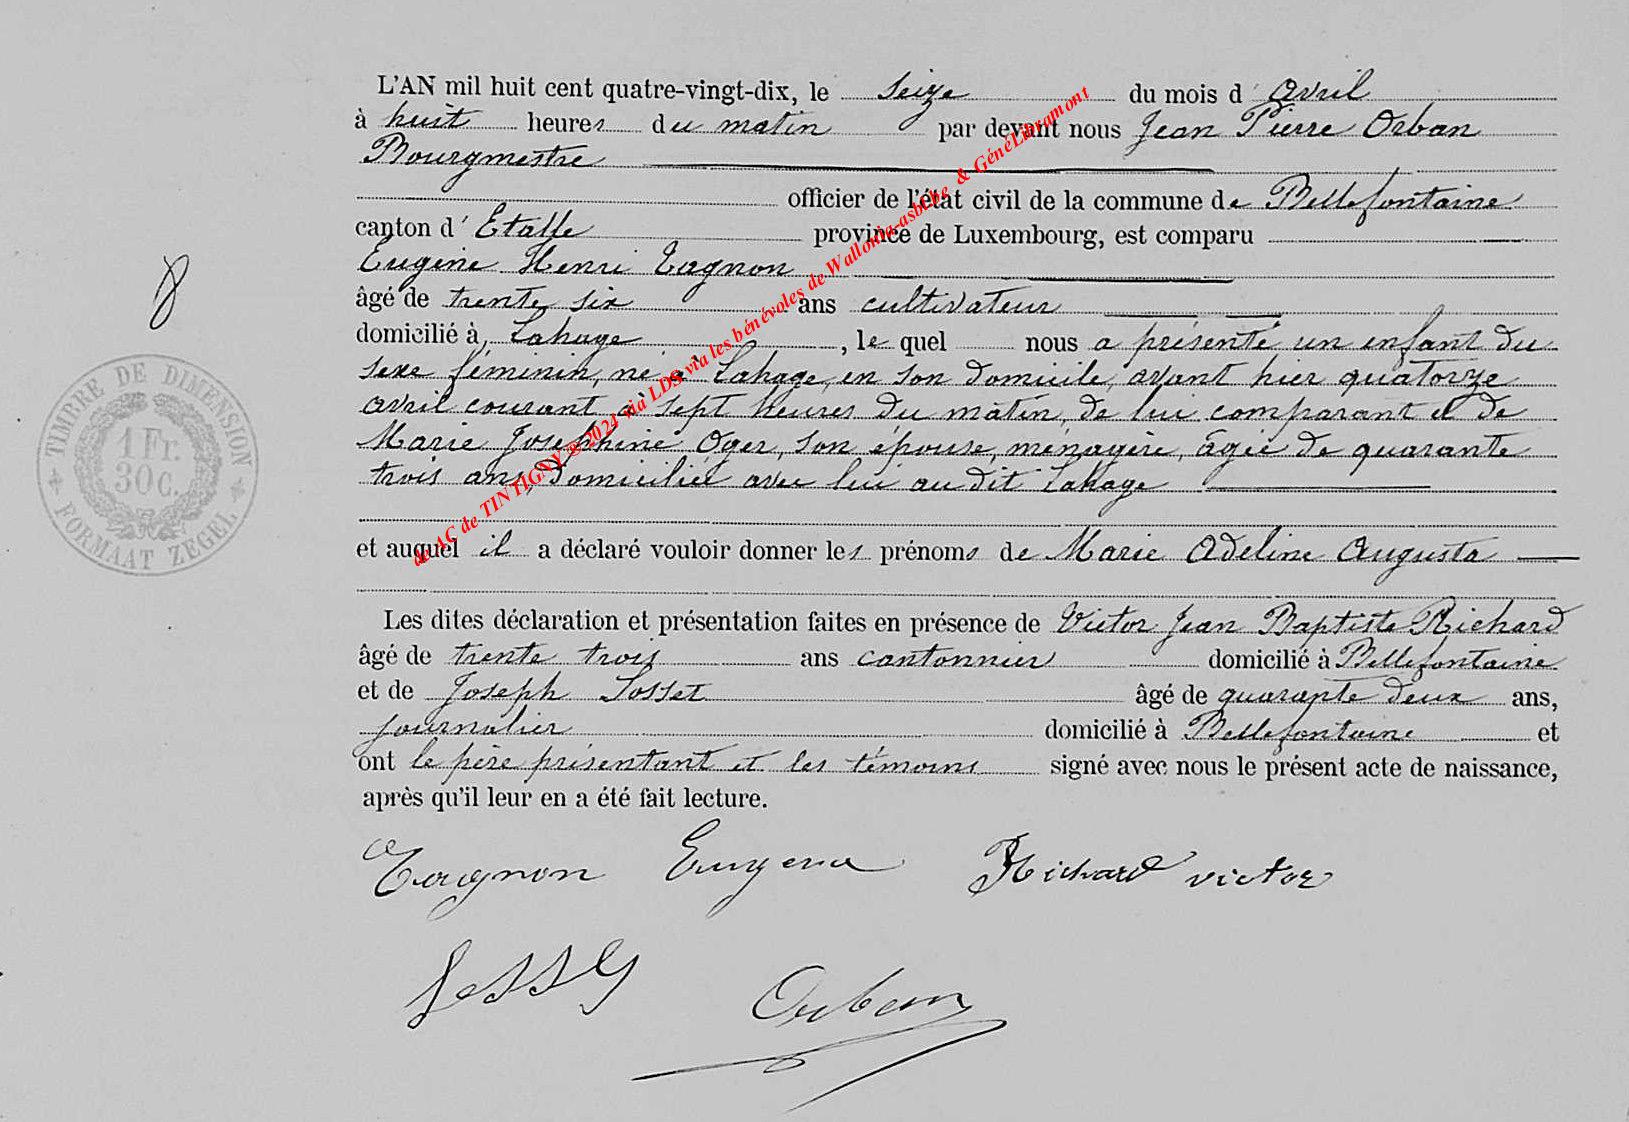 L'AN mil huit cent quatre-vingt-dix, le seize du mois d' avril
à huit heures du matin par devant nous Jean Pierre Orban
Bourgmestre
officier de l'état civil de la commune de Bellefontaine
canton d' Etalle province de Luxembourg, est comparu
Eugène Henri Tagnon
âgé de trente six ans cultivateur
domicilié à, Lahage, le quel nous a présenté un enfant du
sexe féminin, né à Lahage, en son domicile, avant hier quatorze
avril courant à sept heures du matin, de lui comparant et de
Marie Joséphine Oger, son épouse, ménagère, âgée de quarante
trois ans, domiciliée avec lui au dit Lahage
et auquel il a déclaré vouloir donner les prénoms de Marie Adeline Augusta
Les dites déclaration et présentation faites en présence de Victor Jean Baptiste Richard
âgé de trente trois ans cantonnier domicilié à Bellefontaine
et de Joseph Sosset âgé de quarante deux ans,
journalier domicilié à Bellefontaine et
ont le père présentant et les témoins signé avec nous le présent acte de naissance,
après qu'il leur en a été fait lecture.
Tagnon Eugene Richard victor
Orban
8
TIMBRE DE DIMENSION
1 Fr.
30 C.
FORMAAT ZEGEL
de AC de TINTIGNY @ 2024 via LDS via les bénévoles de Wallonia-asbl.be & GénéLibramont